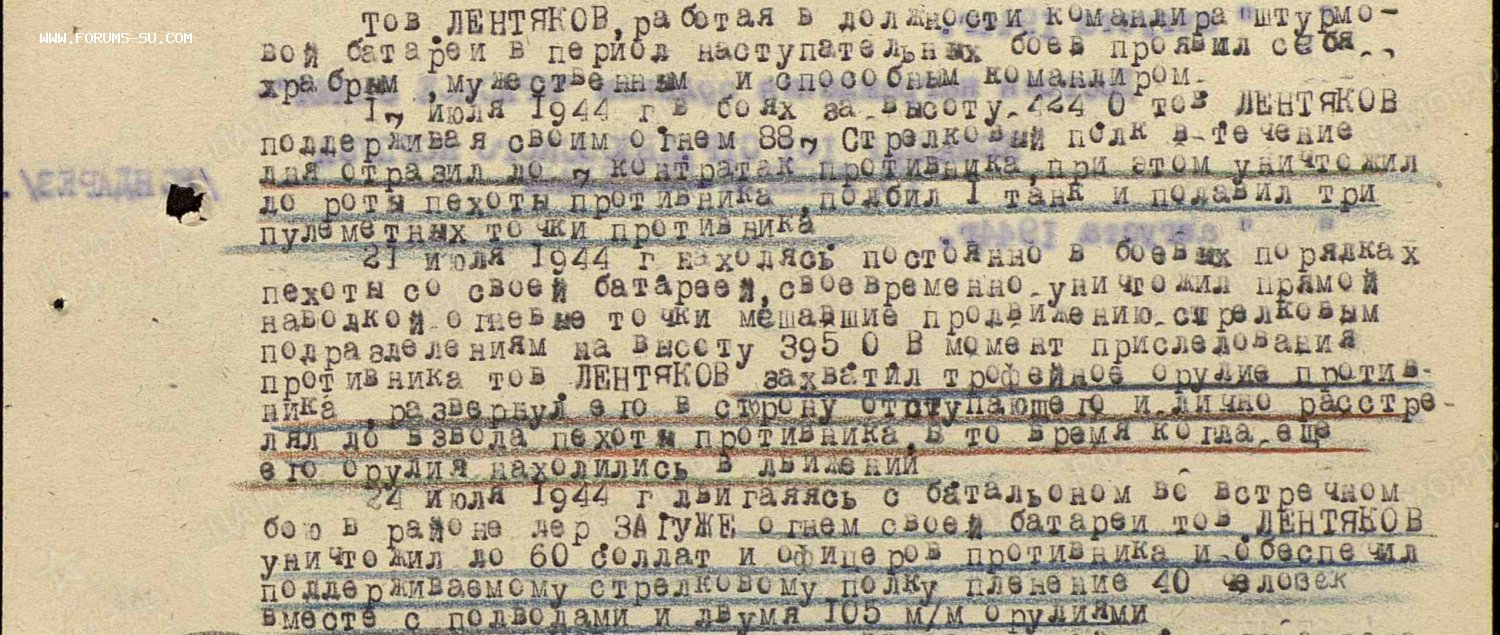 WWW.FORUMS-SU.COM
Тов ЛЕНТЯКОВ, работая в должности командира штурмо-
вой батареи в период наступательных боев проявил себя
храбрым ,мужественным и способным командиром.
июля 1944 г в боях за высоту 424 0 тов ЛЕНТЯКОВ
поддерживая своим огнем Стрелковый полк в течение
дня отразил до контратак противника,при этом уничтожил
до роты пехоты противника ,подбил I танк и подавил три
пулеметных точки противника
21 июля 1944 г находясь постоянно в боевых порядках
пехоты со своей батареей,своевременно уничтожил прямой
наводкой огневые точки мешавшие продвижению стрелковым
подразделениям на высоту 395 0 В момент приследования
противника тов ЛЕНТЯКОВ захватил трофейное орудие против-
ника ,развернул его в сторону отступающего и лично расстре-
лял до взвода пехоты противника,в то время когда еще
его орудия находились в движений
24 июля 1944 г двигаяясь с батальоном во встречном
бою в районе дер огнем своей батареи тов ЛЕНТЯКОВ
уничтожил до 60 солдат и офицеров противника и обеспечил
поддерживаемому стрелковому полку пленение 40 человек
вместе с подводами и двумя 105 м/м орудиями
августа 1944г.